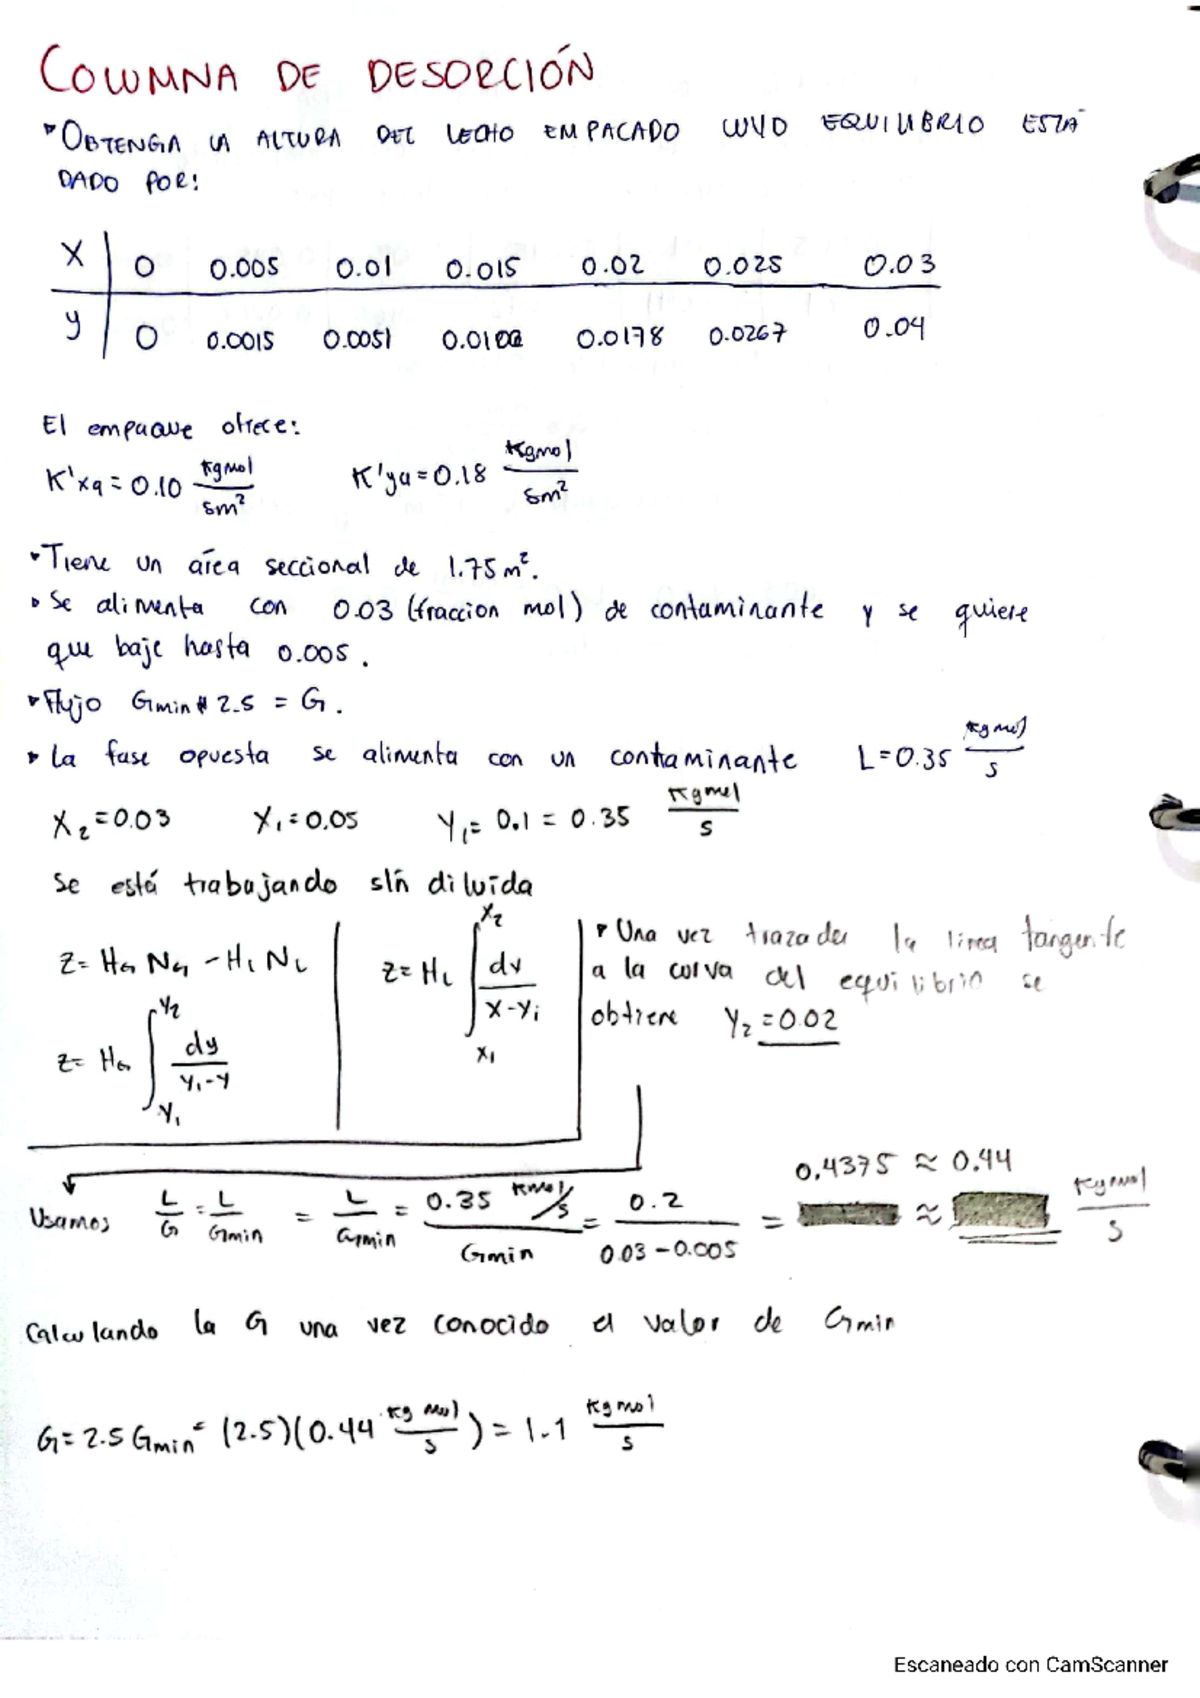 COLUMNA DE DESORCIÓN
OBTENGA LA ALTURA DEL LECHO EMPACADO CUYO EQUILIBRIO ESTÁ
DADO POR:
X | 0 0.005 0.01 0.015 0.02 0.025 0.03
y | 0 0.0015 0.0051 0.0102 0.0178 0.0267 0.04
El empaque ofrece:
K'xa = 0.10 Kgmol/sm² K'ya = 0.18 Kgmol/sm²
Tiene un área seccional de 1.75 m².
Se alimenta con 0.03 (fraccion mol) de contaminante y se quiere
que baje hasta 0.005.
Flujo Gmin # 2.5 = G.
La fase opuesta se alimenta con un contaminante L=0.35 Kgmol/s
X₂=0.03 X₁=0.05 Y₁= 0.1 = 0.35 Kgmol/s
Se está trabajando sln diluída
Z= HG NG - HL NL
Z= HL ∫ X₁ X₂ dv / X-Yi
Z= HG ∫ Y₁ Y₂ dy / Y₁-Y
Una vez trazador la linea tangente
a la curva del equilibrio se
obtiene Y₂ = 0.02
Usamos L/G = L/Gmin = L/Gmin = 0.35 Kmol/s / Gmin = 0.2 / 0.03-0.005 = 0.4375 ≈ 0.44 Kgmol/s
Calculando la G una vez conocido el valor de Gmin
G= 2.5 Gmin = (2.5)(0.44 Kg mol/s) = 1.1 Kgmol/s
Escaneado con CamScanner